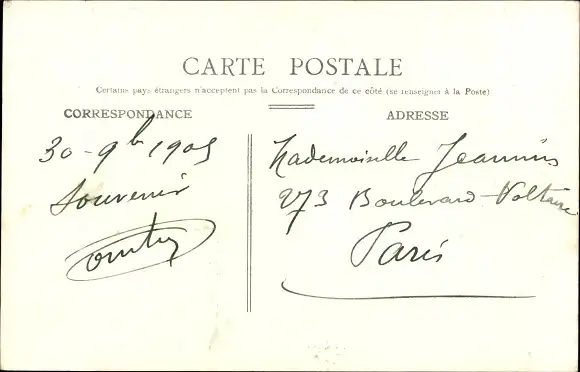 CARTE POSTALE
Certains pays étrangers n'acceptent pas la Correspondance de ce côté (se renseigner à la Poste)
CORRESPONDANCE
30-9b 1905
Souvenir
ADRESSE
Mademoiselle
273 Boulevard Voltaire
Paris